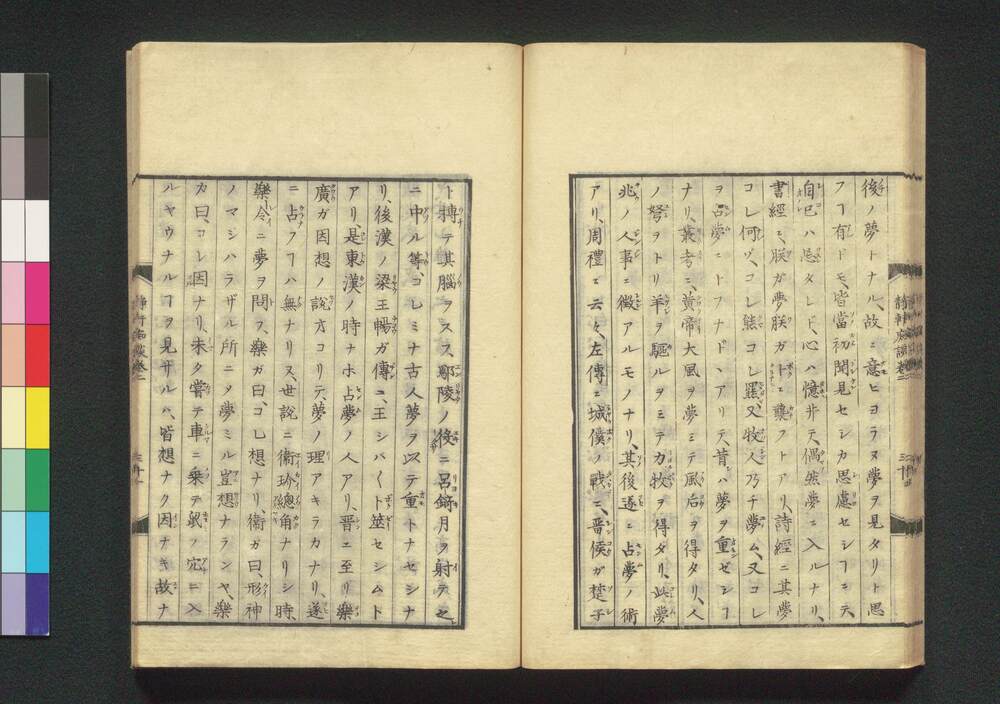 後ノ夢トナル、故ニ意ヒヨラヌ夢ヲ見タリト思
フヿ有ドモ、皆當初聞見セシカ思慮セシヿニテ、
自己ハ忘タレド、心ハ憶井テ、偶然夢ニ入ルナリ、
書經ニ、朕ガ夢朕ガトニ襲フトアリ、詩經ニ其夢
コレ何ゾ、コレ熊コレ羆、又牧人乃チ夢ム、又コレ
ヲ占夢ニトフナドヽアリテ、昔ハ夢ヲ重ゼシヿ
ナリ、叢考ニ、黄帝大風ヲ夢ミテ風后ヲ得タリ、人
ノ弩ヲトリ羊ヲ驅ルヲミテ力牧ヲ得タリ、此夢
兆ノ人事ニ徴アルモノナリ、其後遂ニ占夢ノ術
アリ、周禮ニ云々、左傳ニ城僕ノ戰ニ、晋侯ガ楚子
ト搏テ其腦ヲスス、鄢陵ノ役ニ呂錡月ヲ射テ之
ニ中ル等、コレミナ古人夢ヲ以テ重トナセシナ
リ、後漢ノ梁王暢ガ傳ニ、王シバ〱ト筮セシムト
アリ、是東漢ノ時ナホ占夢ノ人アリ、晋ニ至リ樂
廣ガ因想ノ說オコリテ、夢ノ理アキラカナリ、遂
ニ占フヿハ無ナリヌ、世說ニ衞玠總角ナリシ時、
樂令ニ夢ヲ問フ、樂ガ曰、コレ想ナリ、衞ガ曰、形神
ノマシハラザル所ニタ夢ミル豈想ナランヤ、樂
カ曰、コレ因ナリ、未タ嘗テ車ニ乗テ鼠ノ穴ニ入
ルヤウナルヿヲ見ザルハ、皆想ナク因ナキ故ナ